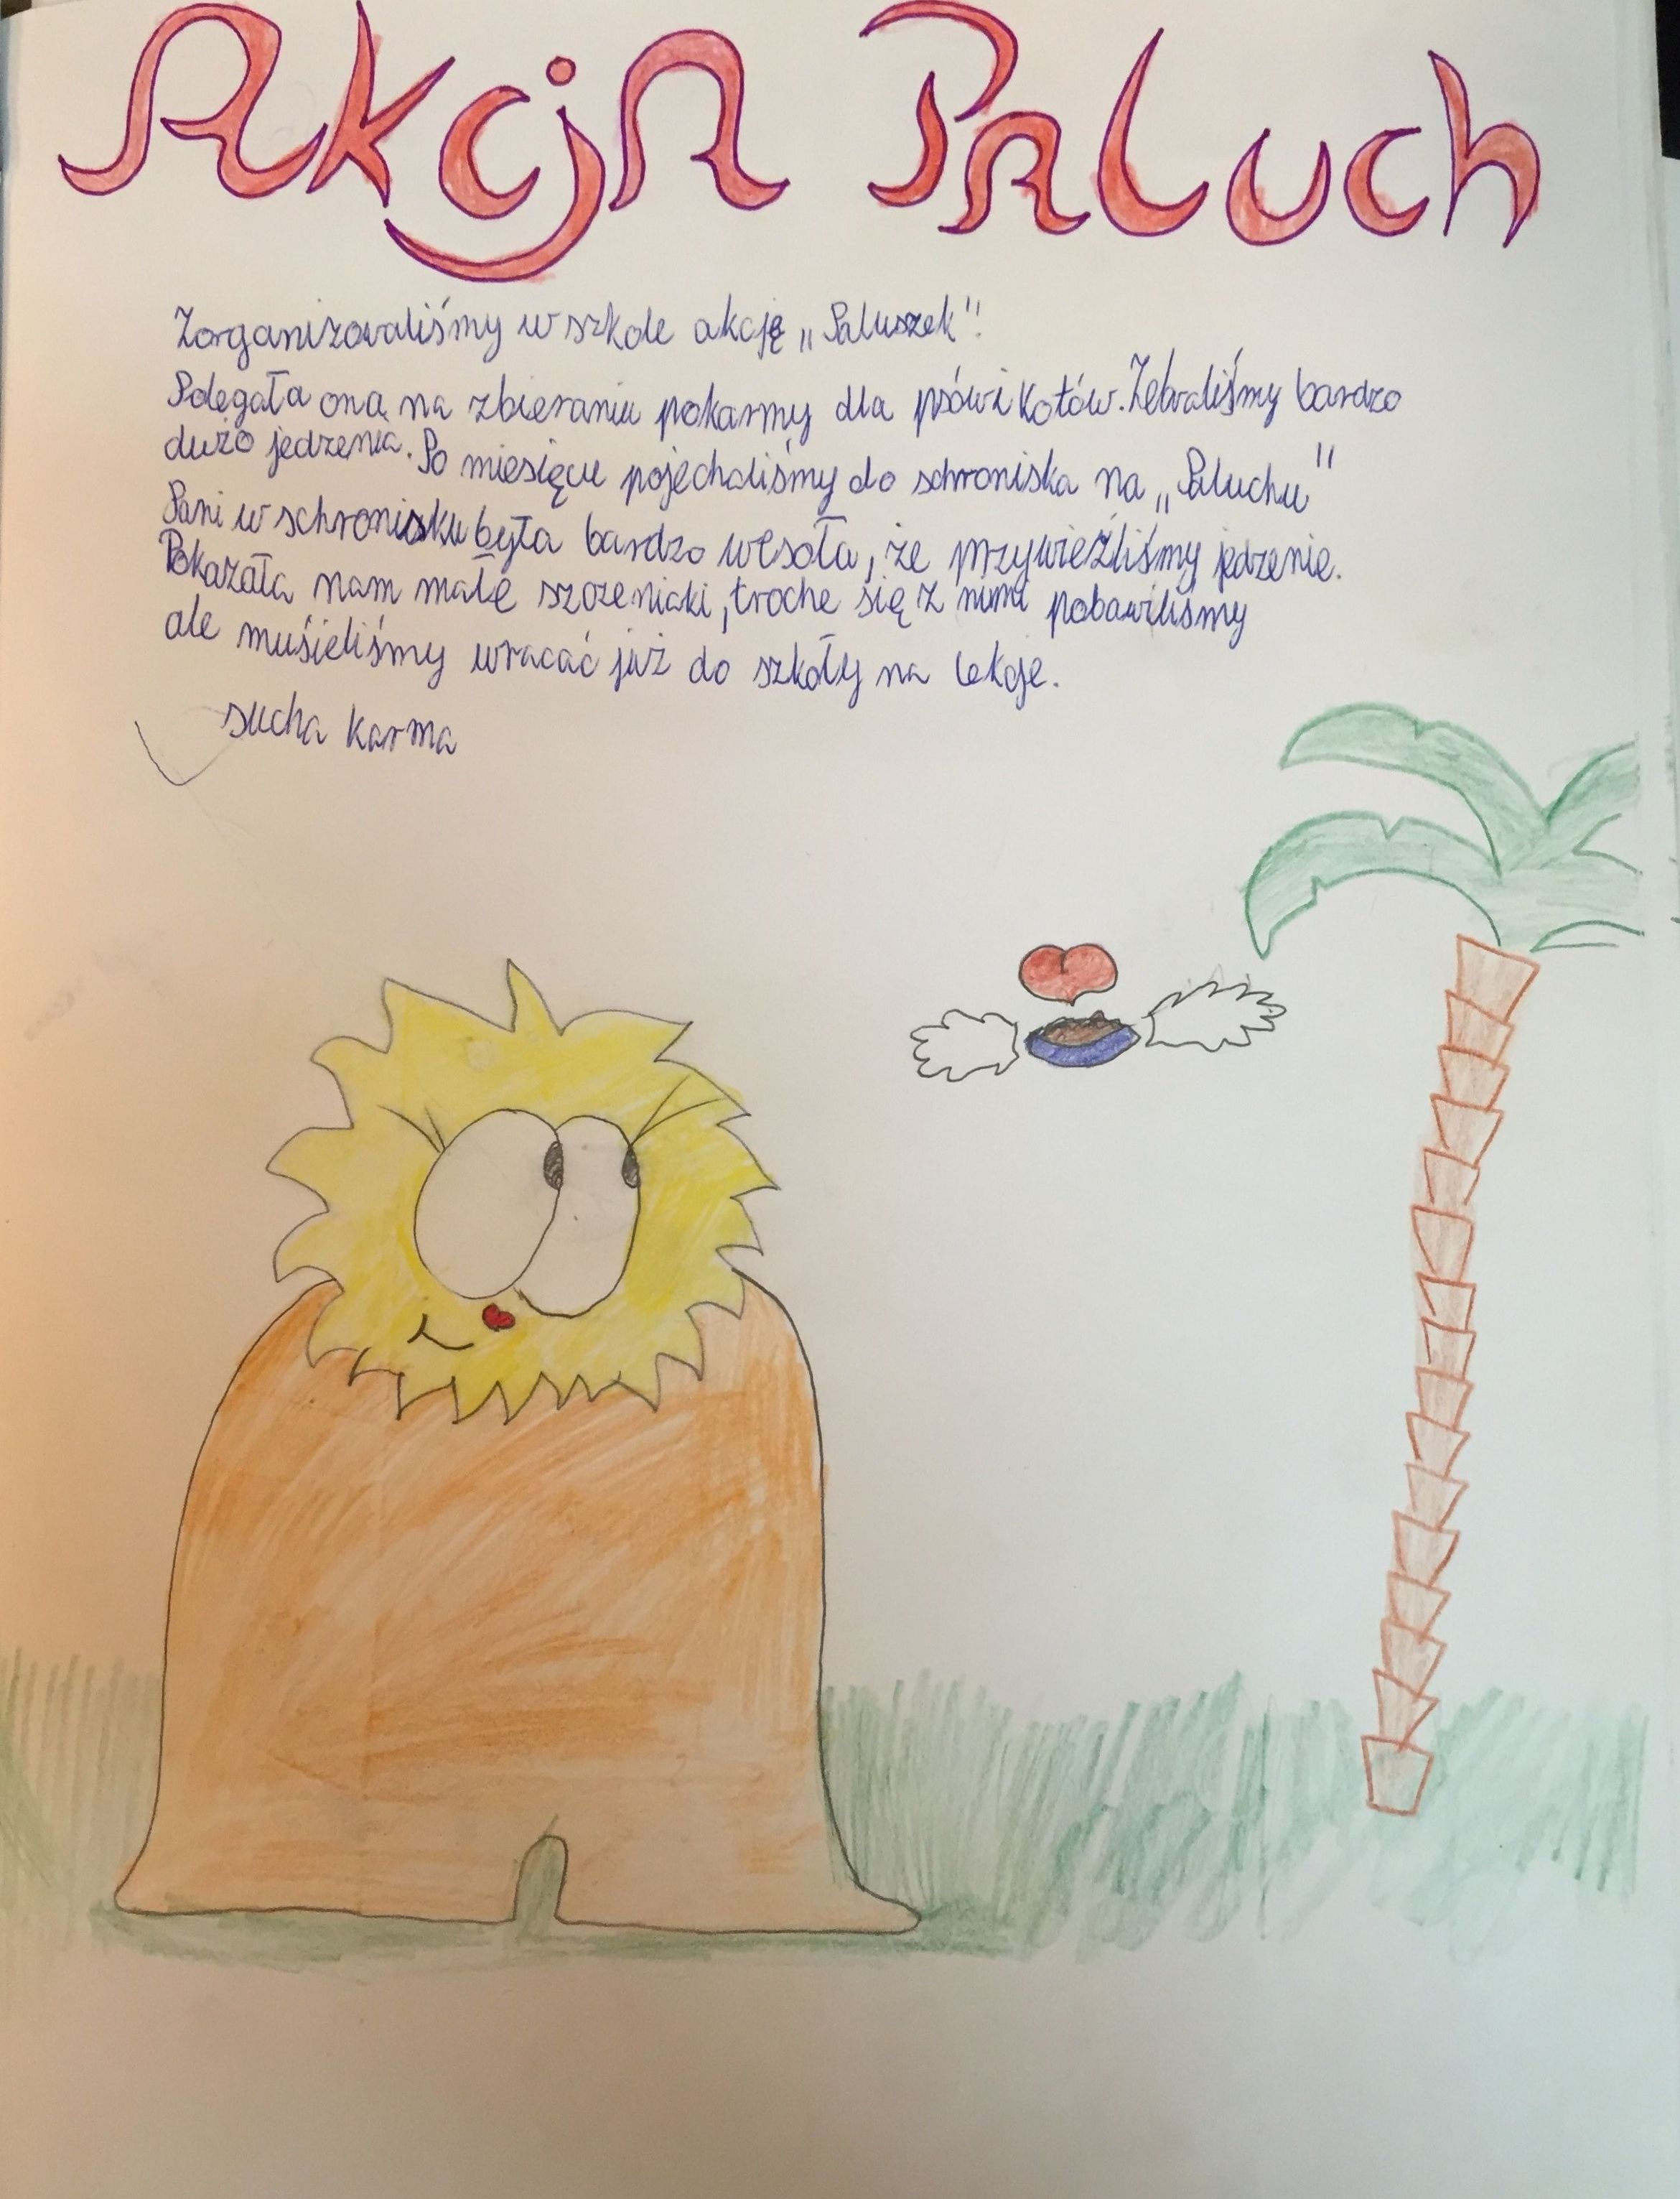 Akcja Paluch
Zorganizowaliśmy w szkole akcję „Paluszek"!
Polegała ona na zbieraniu pokarmy dla psów i kotów. Zebraliśmy bardzo
dużo jedzenia. Po miesiącu pojechaliśmy do schroniska na „Paluchu"
Pani w schronisku była bardzo wesoła, że przywieźliśmy jedzenie.
Pokazała nam małe szczeniaki, troche się z nimi pobawiliśmy
ale muśieliśmy wracać już do szkoły na lekcje.
sucha karma